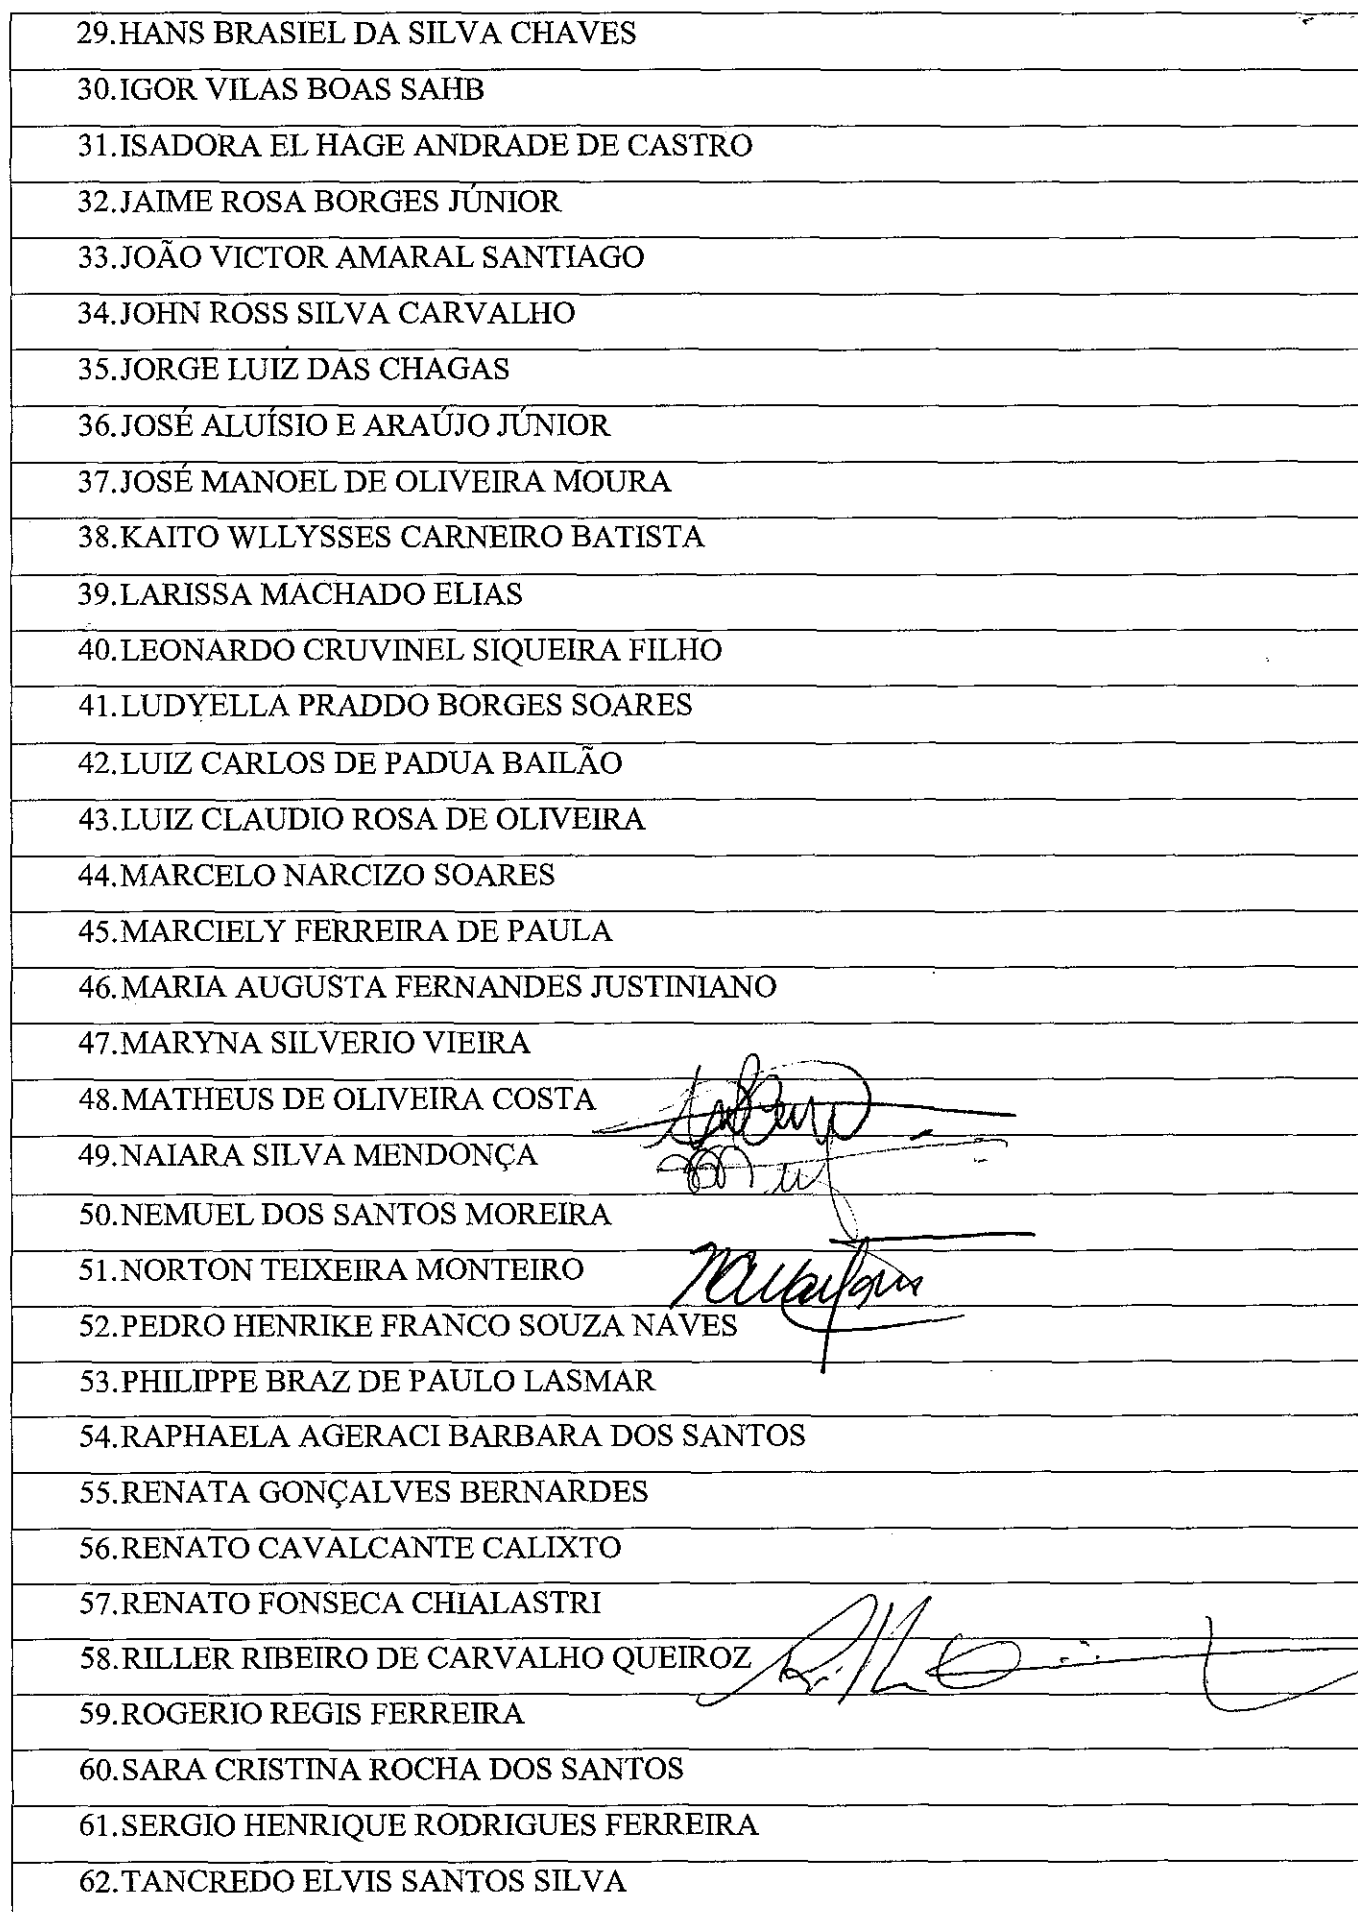 29.HANS BRASIEL DA SILVA CHAVES
30.IGOR VILAS BOAS SAHB
31.ISADORA EL HAGE ANDRADE DE CASTRO
32.JAIME ROSA BORGES JÚNIOR
33.JOÃO VICTOR AMARAL SANTIAGO
34.JOHN ROSS SILVA CARVALHO
35.JORGE LUIZ DAS CHAGAS
36.JOSÉ ALUÍSIO E ARAÚJO JÚNIOR
37.JOSÉ MANOEL DE OLIVEIRA MOURA
38.KAITO WLLYSSES CARNEIRO BATISTA
39.LARISSA MACHADO ELIAS
40.LEONARDO CRUVINEL SIQUEIRA FILHO
41.LUDYELLA PRADDO BORGES SOARES
42.LUIZ CARLOS DE PADUA BAILÃO
43.LUIZ CLAUDIO ROSA DE OLIVEIRA
44.MARCELO NARCIZO SOARES
45.MARCIELY FERREIRA DE PAULA
46.MARIA AUGUSTA FERNANDES JUSTINIANO
47.MARYNA SILVERIO VIEIRA
48.MATHEUS DE OLIVEIRA COSTA
49.NAIARA SILVA MENDONÇA
50.NEMUEL DOS SANTOS MOREIRA
51.NORTON TEIXEIRA MONTEIRO
52.PEDRO HENRIKE FRANCO SOUZA NAVES
53.PHILIPPE BRAZ DE PAULO LASMAR
54.RAPHAELA AGERACI BARBARA DOS SANTOS
55.RENATA GONÇALVES BERNARDES
56.RENATO CAVALCANTE CALIXTO
57.RENATO FONSECA CHIALASTRI
58.RILLER RIBEIRO DE CARVALHO QUEIROZ
59.ROGERIO REGIS FERREIRA
60.SARA CRISTINA ROCHA DOS SANTOS
61.SERGIO HENRIQUE RODRIGUES FERREIRA
62.TANCREDO ELVIS SANTOS SILVA